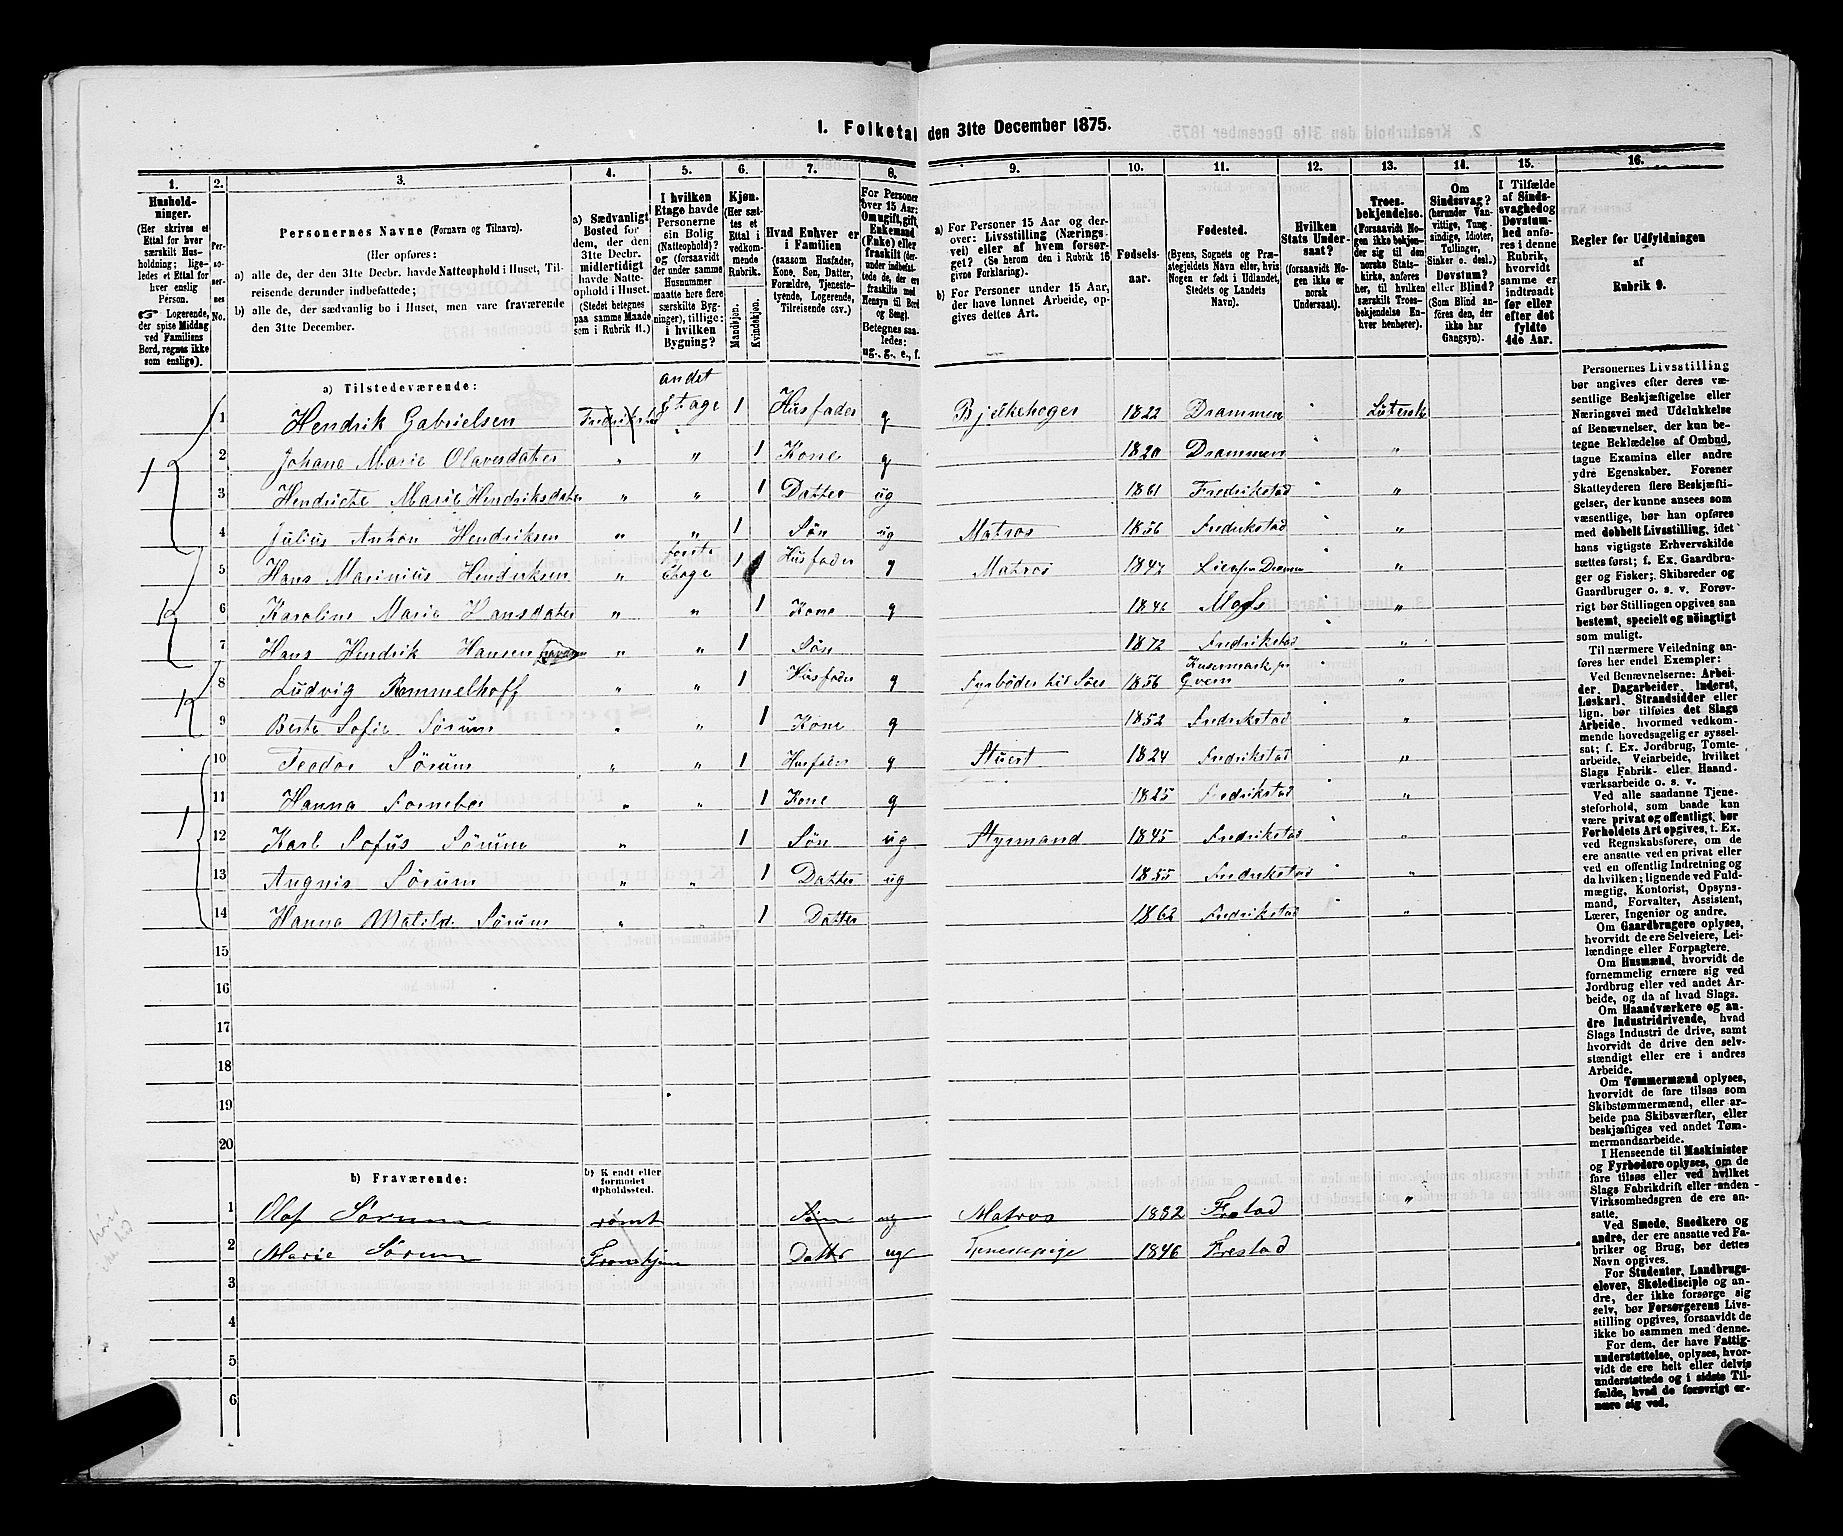 1. Folketal den 31te December 1875.
1. 2. 3. 4. 5. 6. 7. 8. 9. 10. 11. 12. 13. 14. 15. 16.
Husholdninger.
(Her skrives et Ettal for hver særskilt Husholdning; ligeledes et Ettal for hver enslig Person.
☞ Logerende, der spise Middag ved Familiens Bord, regnes ikke som enslige).
Personernes No.
Personernes Navne (Fornavn og Tilnavn).
(Her opføres:
a) alle de, der den 31te Decbr. havde Natteophold i Huset, Tilreisende derunder indbefattede;
b) alle de, der sædvanlig bo i Huset, men vare fraværende den 31te December.
a) Sædvanligt Bosted for dem, der den 31te Decbr. midlertidigt havde Natteophold i Huset. (Stedet betegnes paa samme Maade som i Rubrik 11.)
I hvilken Etage havde Personerne sin Bolig (Natteophold)? og (forsaavidt der under samme Husnummer maatte høre flere særskilte Bygninger), tillige: i hvilken Bygning?
Kjøn. (Her sættes et Ettal i vedkommende Rubrik.
Mandkjøn. Kvindekjøn.
Hvad Enhver er i Familien (saasom Husfader, Kone, Søn, Datter, Forældre, Tjenestetyende, Logerende, Tilreisende osv.)
For Personer over 15 Aar: Om ugift, gift, Enkemand (Enke) eller fraskilt (derunder indbefattede de, der ere fraskilte med Hensyn til Bord og Seng). Betegnes saaledes: ug., g., e., f.
a) For Personer 15 Aar og derover: Livsstilling (Næringsvei) eller af hvem forsørget? (Se herom den i Rubrik 16 givne Forklaring).
b) For Personer under 15 Aar, der have lønnet Arbeide, opgives dettes Art.
Fødselsaar.
Fødested. (Byens, Sognets og Præstegjeldets Navn eller, hvis Nogen er født i Udlandet, Stedets og Landets Navn).
Hvilken Stats Undersaat? (forsaavidt Nogen ikke er norsk Undersaat).
Troesbekjendelse. (Forsaavidt Nogen ikke bekjender sig til den norske Statskirke, anføres her, til hvilken særskilt Troesbekjendelse Enhver henhører).
Om Sindssvag? (herunder Vanvittige, Tungsindige, Idioter, Tullinger, Sinker o. desl.) Døvstum? eller Blind? (Som Blind anføres den, der ikke har Gangsyn).
I Tilfælde af Sindssvaghed og Døvstumhed anføres i denne Rubrik, hvorvidt samme er indtraadt før eller efter det fyldte 4de Aar.
Regler for Udfyldningen af Rubrik 9.
a) Tilstedeværende:
1 1 Hendrik Gabrielsen Fredrikstad andet Etage 1 Husfader g Bjelkehoger 1822 Drammen " Lutersk
2 Johane Marie Olavesdater " " 1 Kone g 1820 Drammen " "
3 Hendriete Marie Hendriksdater " " 1 Datter ug 1861 Fredrikstad " "
4 Julius Anton Hendriksen " " 1 Søn ug Matros 1856 Fredrikstad " "
1 5 Hans Marinius Henderiksen " forste Etage 1 Husfader g Matros 1847 Drammen "
6 Karoline Marie Hansdater " " 1 Kone g Moss " "
7 Hans Hendrik Hansen " " 1 Søn 1872 Fredrikstad " "
1 8 Ludvig Rommelhoff " " 1 Husfader g Fyrbøder til Søes 1856 "
9 Berte Sofie Sørum " " 1 Kone g 1852 Fredrikstad "
1 10 Teodor Sørum " " 1 Husfader g Stuert 1824 Fredrikstad " "
11 Hanna Fornebo " " 1 Kone g 1825 Fredrikstad " "
12 Karl Sofus Sørum " 1 Søn ug Styrmand 1845 Fredrikstad " "
13 Angnis Sørum " " 1 Datter ug 1855 Fredrikstad " "
14 Hanna Matilde Sørum " " 1 Datter 1862 Fredrikstad "
15
16
17
18
19
20
b) Fraværende: b) Kendt eller formodet Opholdssted.
1 Olaf Sørum rømt Søn ug Matros 1852 Frstad "
2 Marie Sørum Tronhjem Datter ug Tjenestepige 1846 Frestad
3
4
5
6
Personernes Livsstilling
bør angives efter deres væ-
sentlige Beskjæftigelse eller
Næringsvei med Udelukkelse
af Benævnelser, der kun be-
tegne Beklædelse af Ombud,
tagne Examina eller andre
ydre Egenskaber. Forener
Skatteyderen flere Beskjæfti-
gelser, der kunne ansees som
væsentlige, bør han opføres
med dobbelt Livsstilling, idet
hans vigtigste Erhvervskilde
sættes først; f. Ex. Gaardbru-
ger og Fisker; Skibsreder og
Gaardbruger o. s. v. Forøv-
rigt bør Stillingen opgives saa
bestemt, specielt og nøiagtigt
som muligt.
Til nærmere Veiledning an-
føres her endel Exempler:
Ved Benævnelserne: Arbei-
der, Dagarbeider, Inderst,
Løskarl, Strandsidder eller
lign. bør tilføies det Slags
Arbeide, hvormed vedkom-
mende hovedsagelig er syssel-
sat; f. Ex. Jordbrug, Tomte-
arbeide, Veiarbeide, hvilket
Slags Fabrik- eller Haand-
værksarbeide o. s. v.
Ved alle saadanne Tjene-
steforhold, som baade kan
være privat og offentligt, bør
Forholdets Art opgives, t. Ex.
ved Regnskabsførere, om de
ere ansatte ved en privat eller
ved en offentlig Indretning og
da hvilken; lignende ved Fuld-
mægtig, Kontorist, Opsyns-
mand, Forvalter, Assistent,
Lærer, Ingeniør og andre.
Om Gaardbrugere oplyses,
hvorvidt de ere Selveiere, Lei-
lændinge eller Forpagtere.
Om Husmænd, hvorvidt de
fornemmelig ernære sig ved
Jordbrug eller ved andet Ar-
beide, og da af hvad Slags.
Om Haandværkere og an-
dre Industridrivende, hvad
Slags Industri de drive, samt
hvorvidt de drive den selv-
stændigt eller ere i andres
Arbeide.
Om Tømmermænd oplyses,
hvorvidt de fare tilsøs som
Skibstømmermænd, eller ar-
beide paa Skibsværfter, eller
beskjæftiges ved andet Tøm-
mermandsarbeide.
I Henseende til Maskinister
og Fyrbødere oplyses, om de
fare tilsøs eller ved hvilket
Slags Fabrikdrift eller anden
Virksomhedsgren de ere an-
satte.
Ved Smede, Snedkere og
andre, der ere ansatte ved Fa-
briker og Brug, bør dettes
Navn opgives.
For Studenter, Landbrugs-
elever, Skoledisciple og an-
dre, der ikke forsørge sig
selv, bør Forsørgerens Livs-
stilling opgives, forsaavidt de
ikke bo sammen med denne.
For dem, der have Fattig-
understøttelse, oplyses, hvor-
vidt de ere helt eller delvis
understøttede og i sidste Til-
fælde, hvad de forøvrigt er-
nære sig ved.